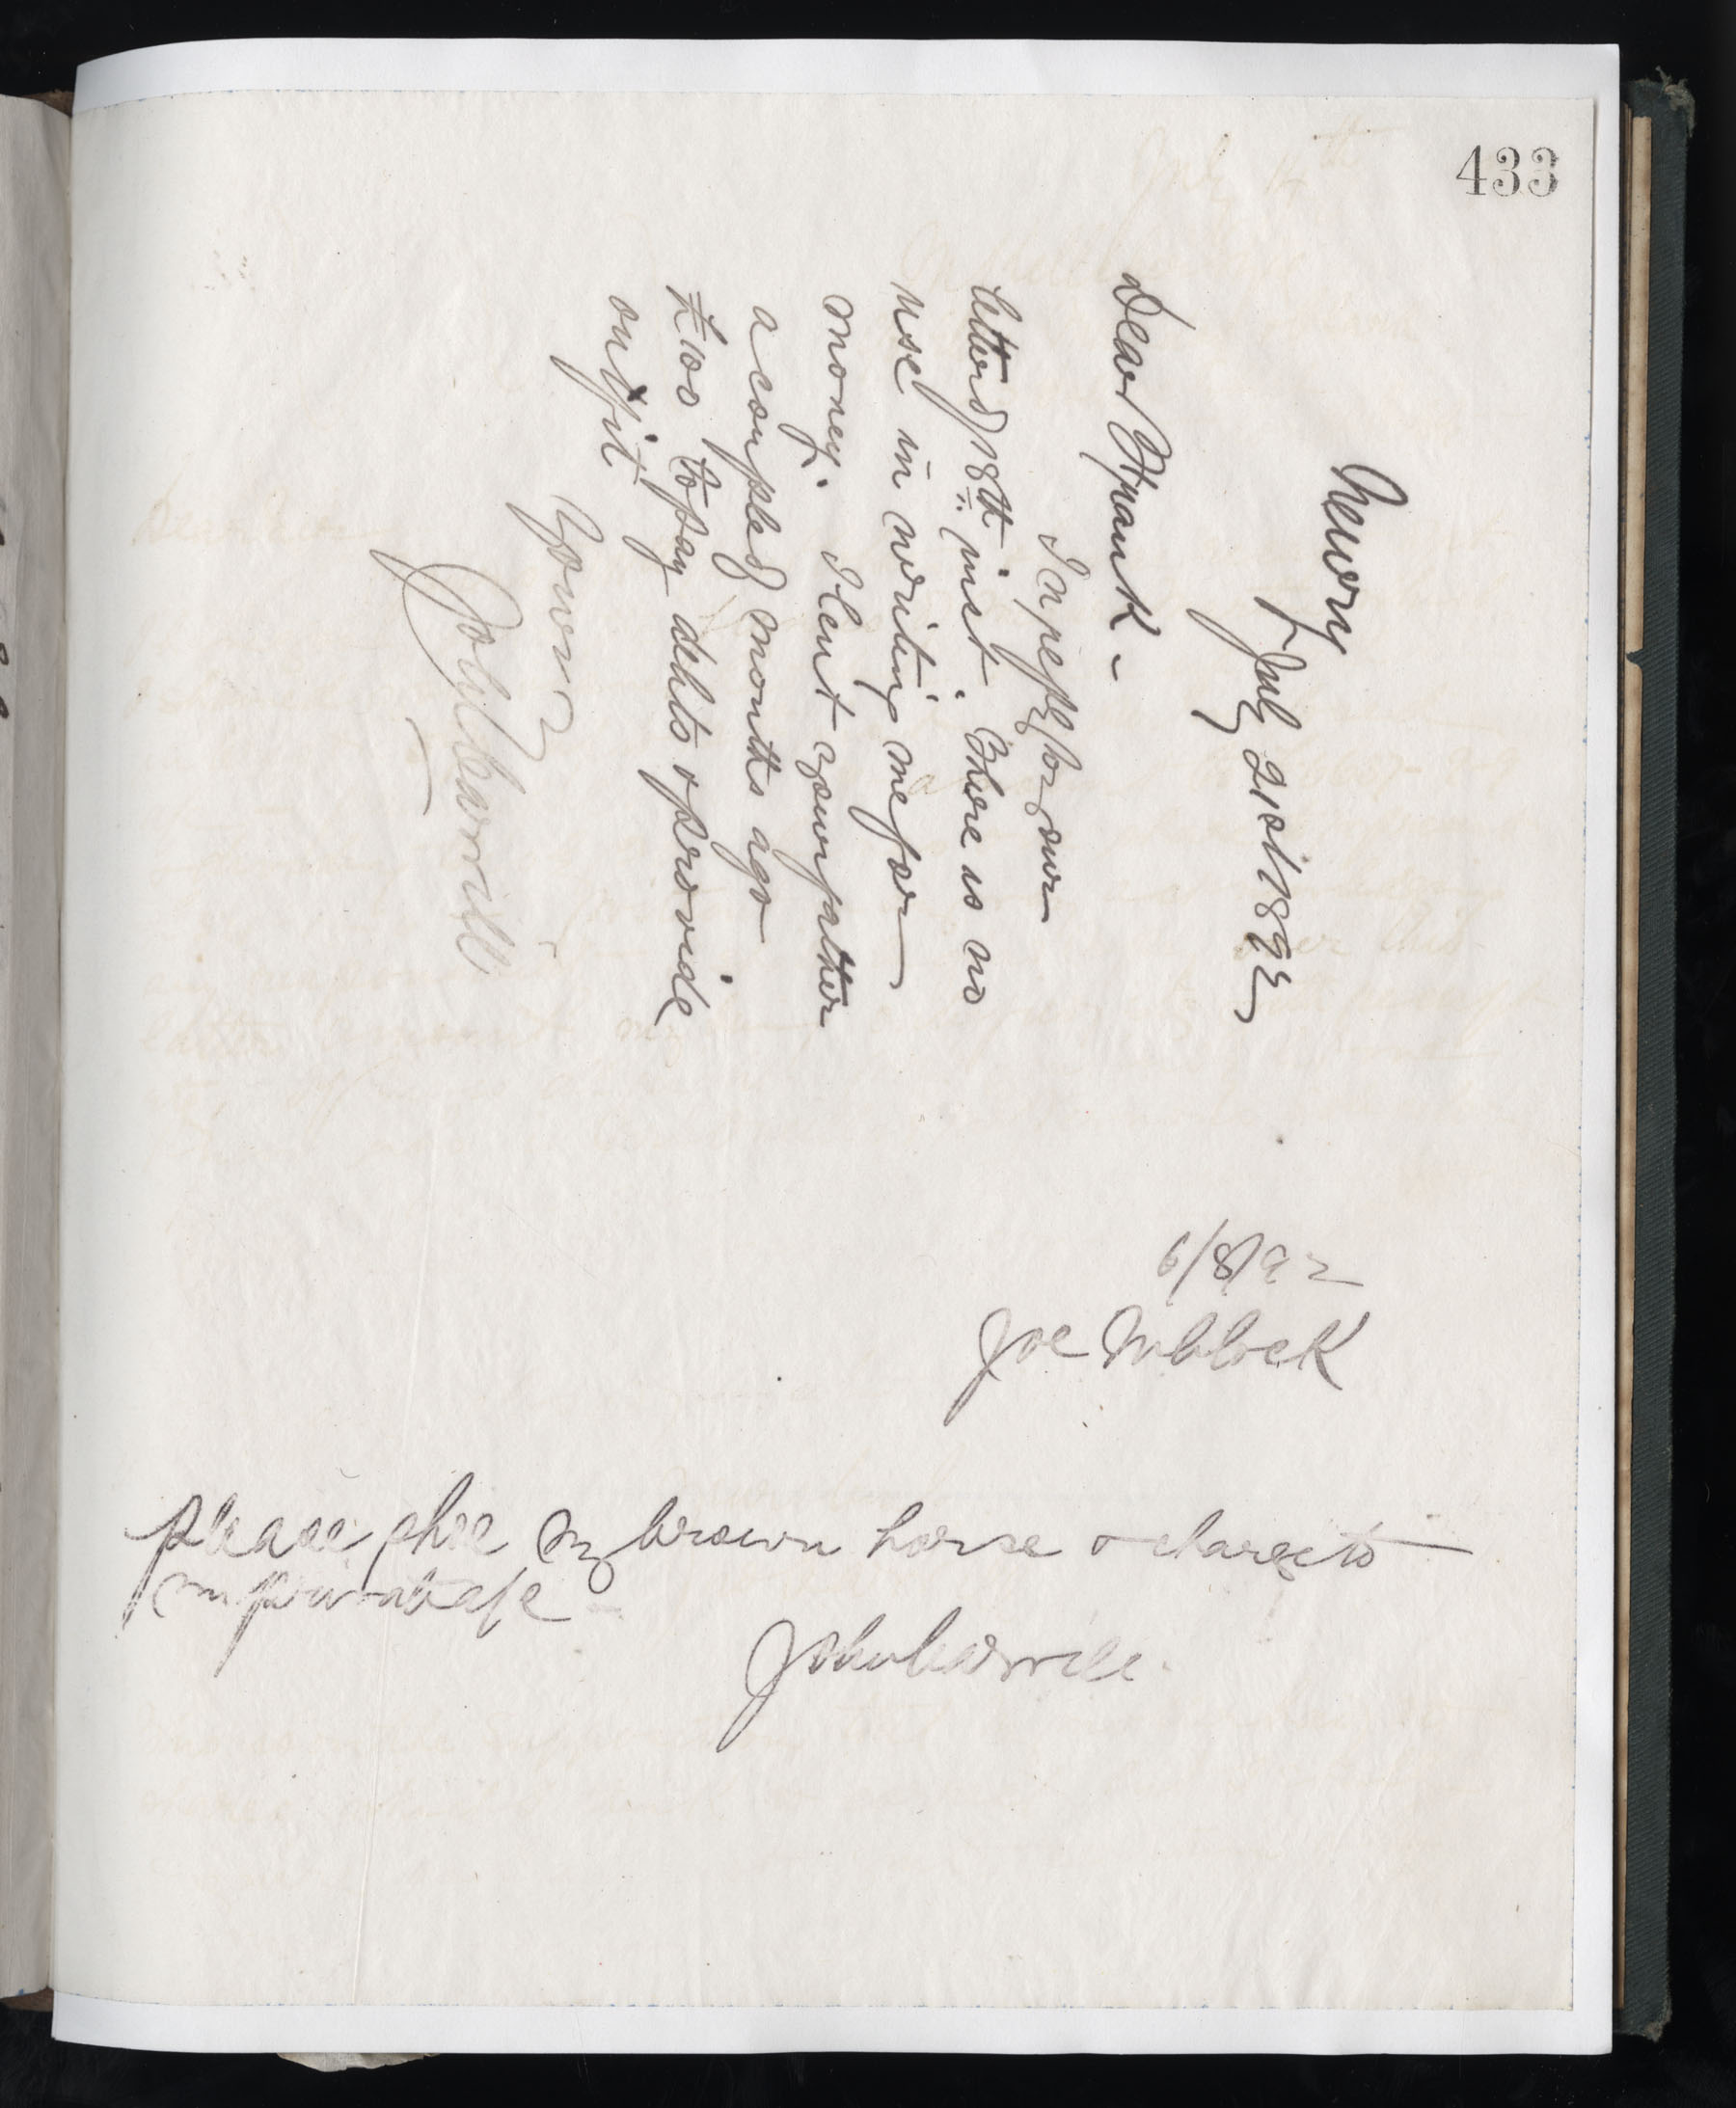 433
Newry
July 21st 1892
Dear Frank -
In reply to your
letter of 18th inst. There is no
use in writing me for
money. I lent your father
a couple of months ago
£100 to pay debts & provide
outfit
Yours
John Carvill
6/8/92
Joe
Please shoe my brown horse & charge to
my private a/c
John Carvill